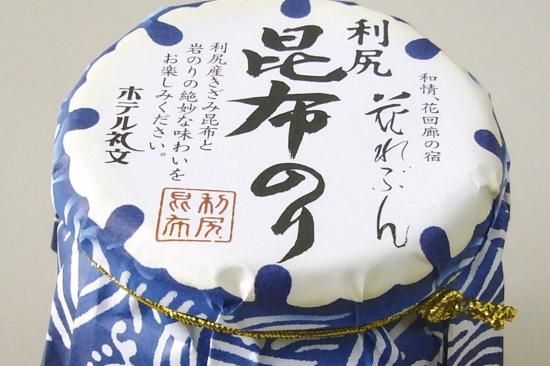 和情、花回廊の宿
花れぶん
利尻
昆布のり
利尻産きざみ昆布と
岩のりの絶妙な味わいを
お楽しみください。
ホテル礼文
利尻
昆布